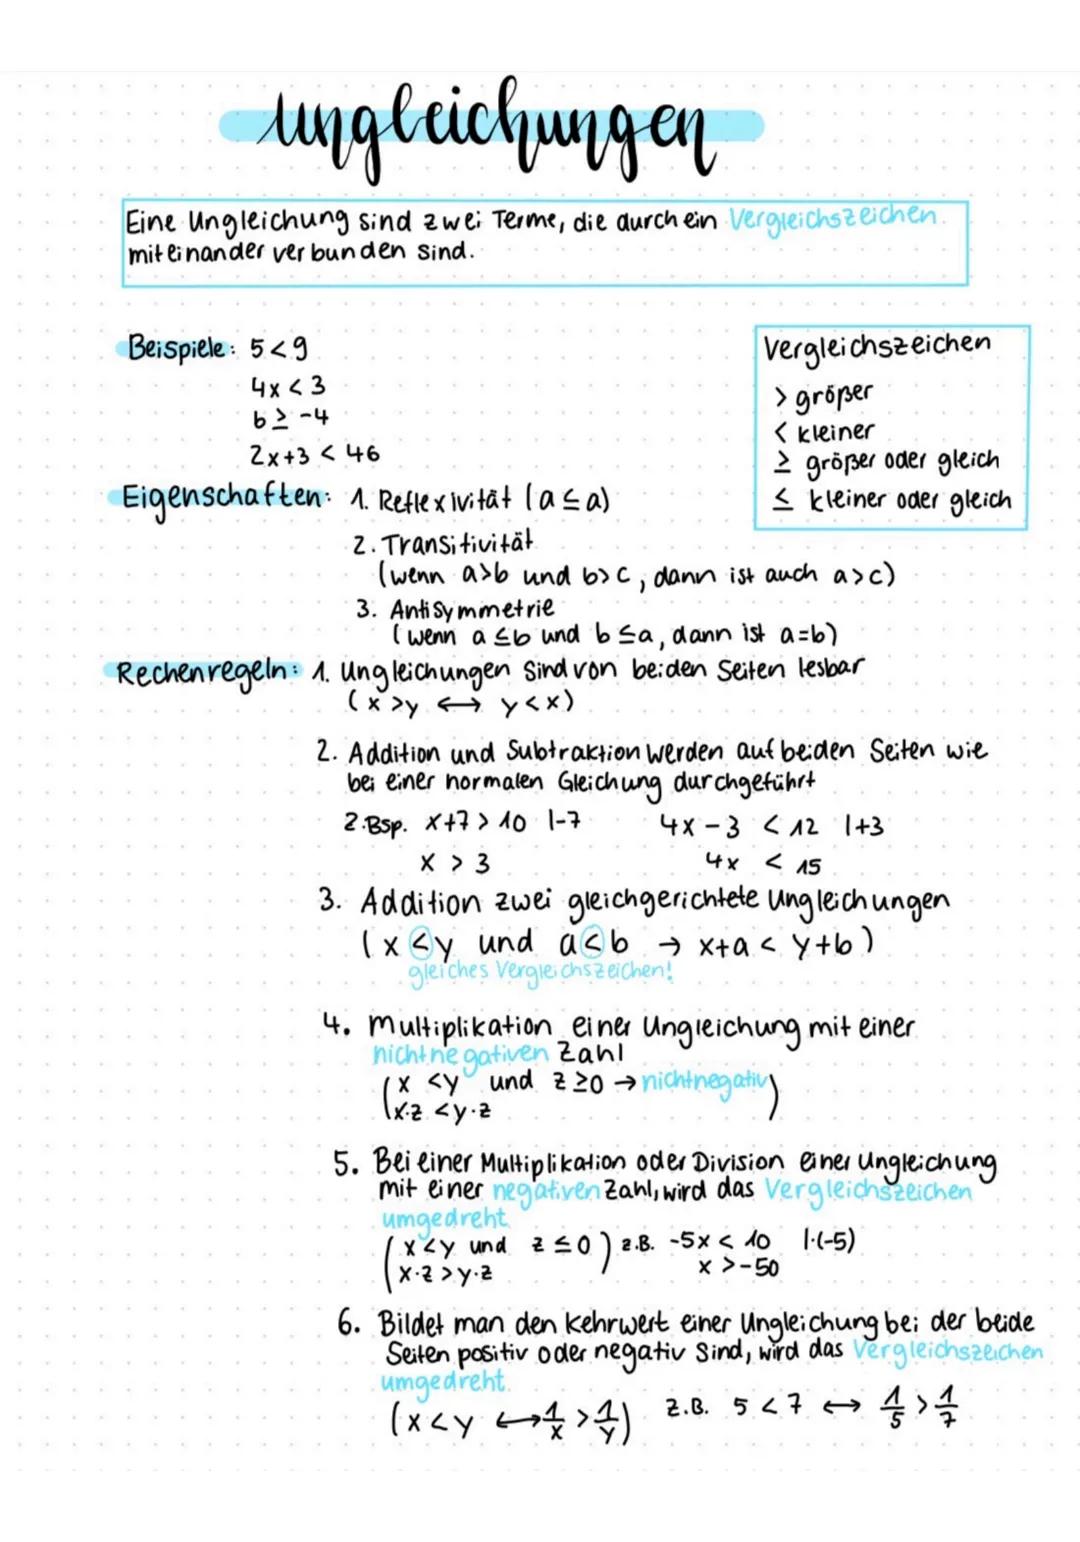 Ungleichungen
Eine Ungleichung sind zwei Terme, die durch ein Vergleichszeichen
miteinander verbunden sind.
Beispiele: 5 < 9
4x < 3
b ≥ -4
2x+3 < 46
Vergleichszeichen
> größer
< kleiner
≥ größer oder gleich
≤ kleiner oder gleich
Eigenschaften: 1. Reflexivität (a ≤ a)
2. Transitivität
(wenn a>b und b>c, dann ist auch a>c)
3. Antisymmetrie
(wenn a ≤b und b ≤a, dann ist a=b)
Rechenregeln: 1. Ungleichungen sind von beiden Seiten lesbar
(x >y ⟷ y<x)
2. Addition und Subtraktion werden auf beiden Seiten wie
bei einer normalen Gleichung durchgeführt
z.Bsp. x+7 > 10 |-7 4x - 3 < 12 |+3
x > 3 4x < 15
3. Addition zwei gleichgerichtete Ungleichungen
(x < y und a < b → x+a < y+b)
gleiches Vergleichszeichen!
4. Multiplikation einer Ungleichung mit einer
nichtnegativen Zahl
(x <y und z ≥0 → nichtnegativ)
x·z <y·z
5. Bei einer Multiplikation oder Division einer Ungleichung
mit einer negativen Zahl, wird das Vergleichszeichen
umgedreht
(x<y und z ≤ 0) z.B. -5x < 10 |·(-5)
x·z >y·z x >-50
6. Bildet man den Kehrwert einer Ungleichung bei der beide
Seiten positiv oder negativ sind, wird das Vergleichszeichen
umgedreht
(x<y ⟷ 1/x > 1/y) z.B. 5 < 7 ⟷ 1/5 > 1/7